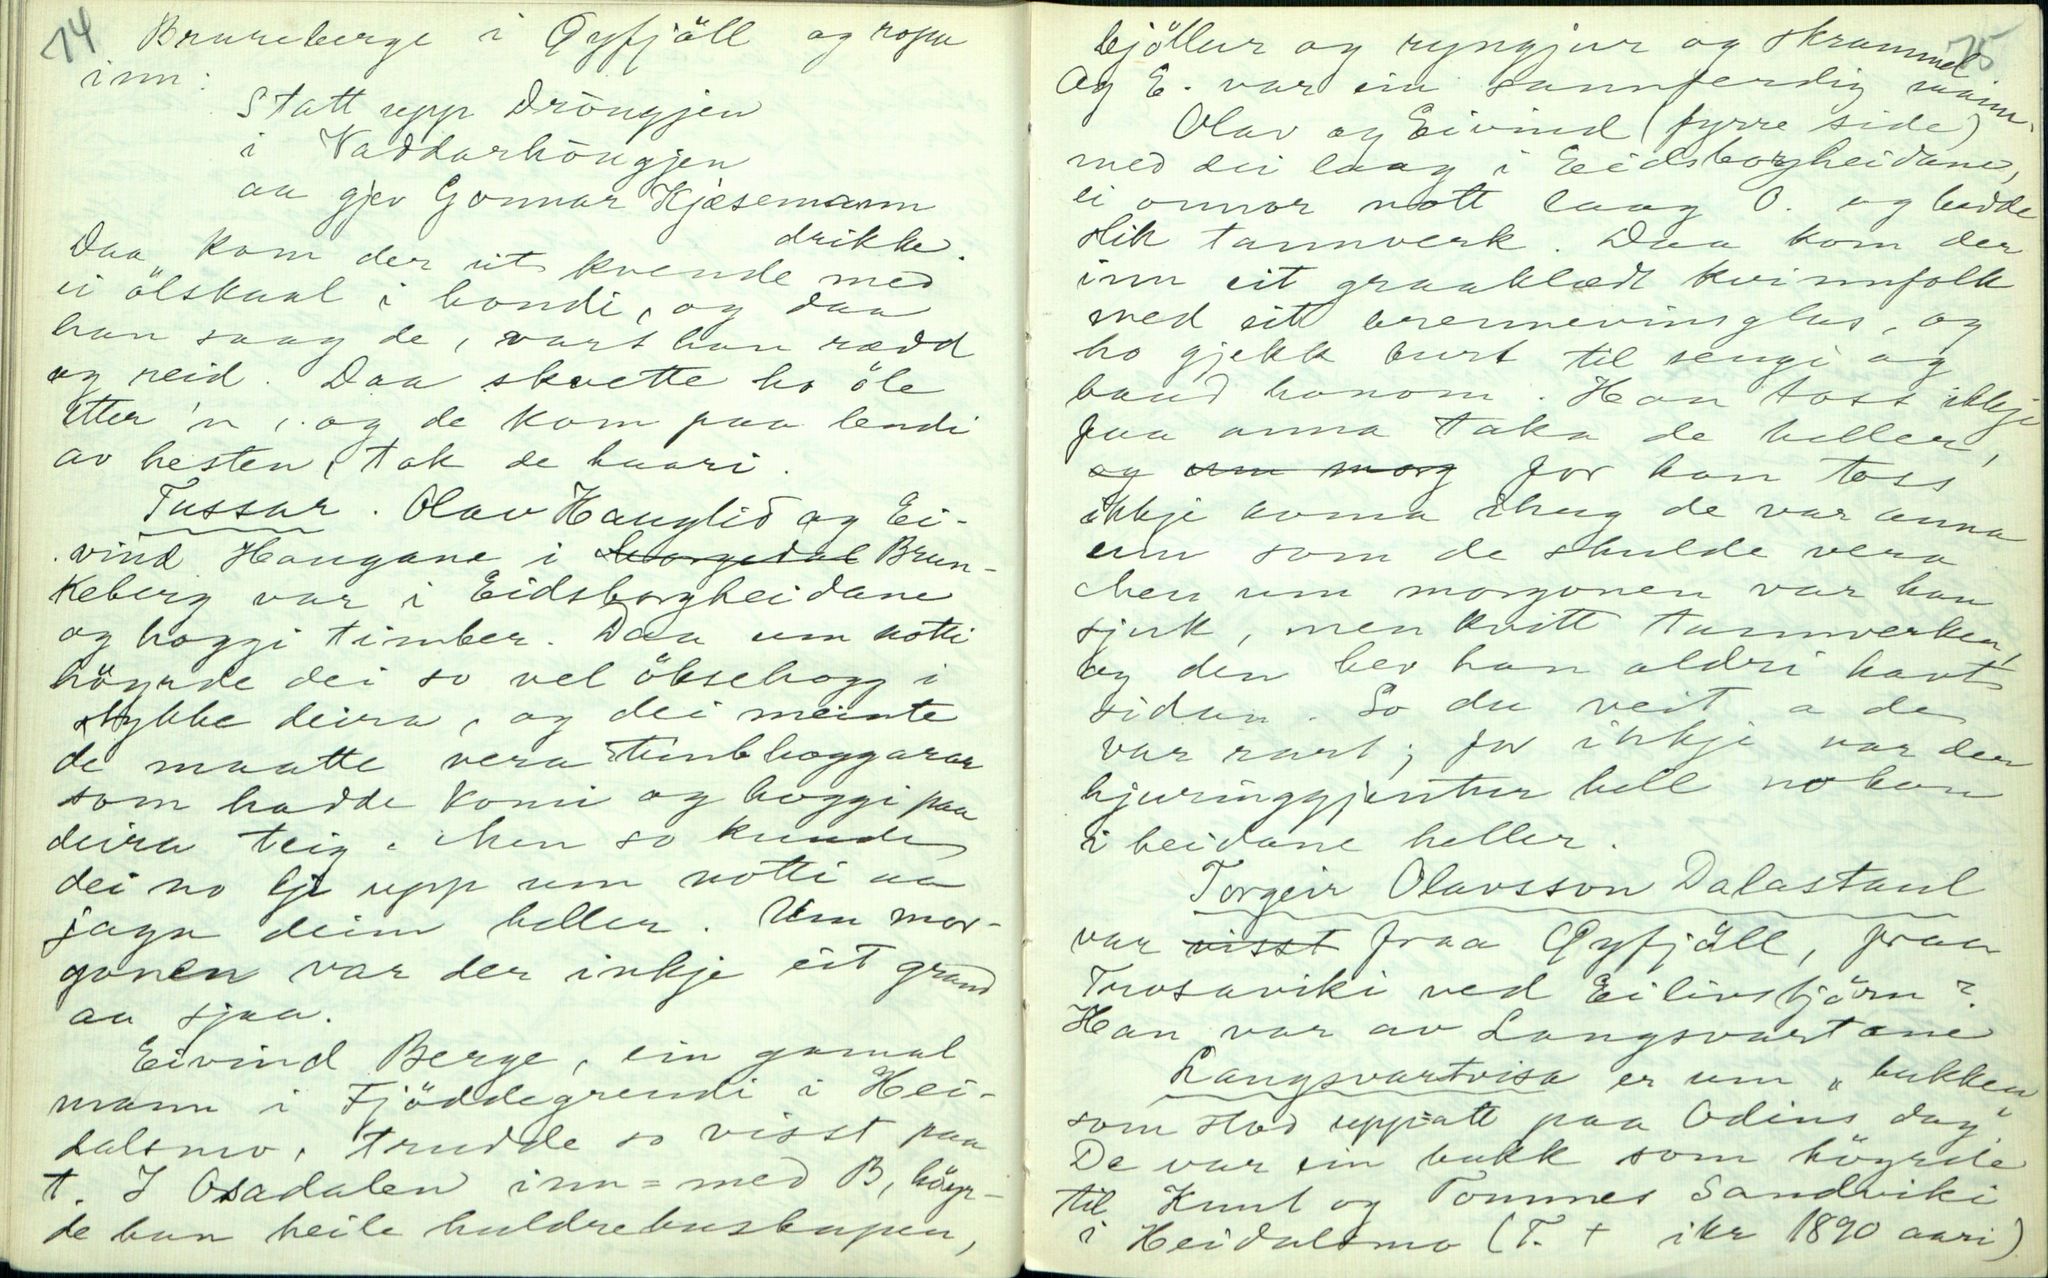 74
Brureberge i Qyfjäll og ropa
inn:
Statt upp Dröngjen
i Naddarhöngjen
aa gjev Gonnar Kjæsemann
drikke.
Daa kom der ut kvende med
ei ölskaal i hondi, og daa
han saag de, vart han rædd
og reid. Daa skvette ho öle
etter 'n, og de kom paa lendi
av hesten, tok de haari.
Tussar. Olav Hauglid og Ei-
vind Haugane i Morgedal Brun-
keberg var i Eidsborgheidane
og hoggi timber. Daa um notti
höyrde dei so vel öksehogg i
stykke deira, og dei meinte
de maatte vera timbhoggarar
som hadde komi og hoggi paa
deira teig. Men so kunde
dei no kje upp um notti aa
jaga deim heller. Um mor-
gonen var der inkje eit grand
aa sjaa.
Eivind Berge, ein gamal
mann i Fjöddegrendi i Hei-
dalsmo, trudde so visst paa
t. I Osadalen inn=med B, höyr-
de han heile huldrebuskapen,
75
bjöllur og ryngjur og skrammel
Og E. var ein sannferdig mann.
Olav og Eivind (fyrre side)
med dei laag i Eidsborgheidane,
ei onnor nott laag O. og hadde
slik tannverk. Daa kom der
inn eit graaklædt kvinnfolk
med eit brennevinsglas, og
ho gjekk burt til sengi og
baud honom. Han toss ikkje
faa anna taka de heller,
og um morg for han toss
ikkje anna ihug de var anna
enn som de skulde vera
Men um morgonen var han
sjuk, men kvitt tannverken,
og den hev han aldri havt
sidan. So du veit a de
var rart; for inkje var der
hjuringgjentur hell nokon
i heidane heller.
Torgeir Olavsson Dalastaul
var visst fraa Qyfjäll, fraa
Trosaviki ved Eilivstjörn?
Han var av Langsvartane
Langsvartvisa er um „bukken
som stod uppatt paa Odins dag"
De var ein bukk som höyrde
til Knut og Tommes Sandviki
i Heidalsmo (T. + ikr 1890 aari)